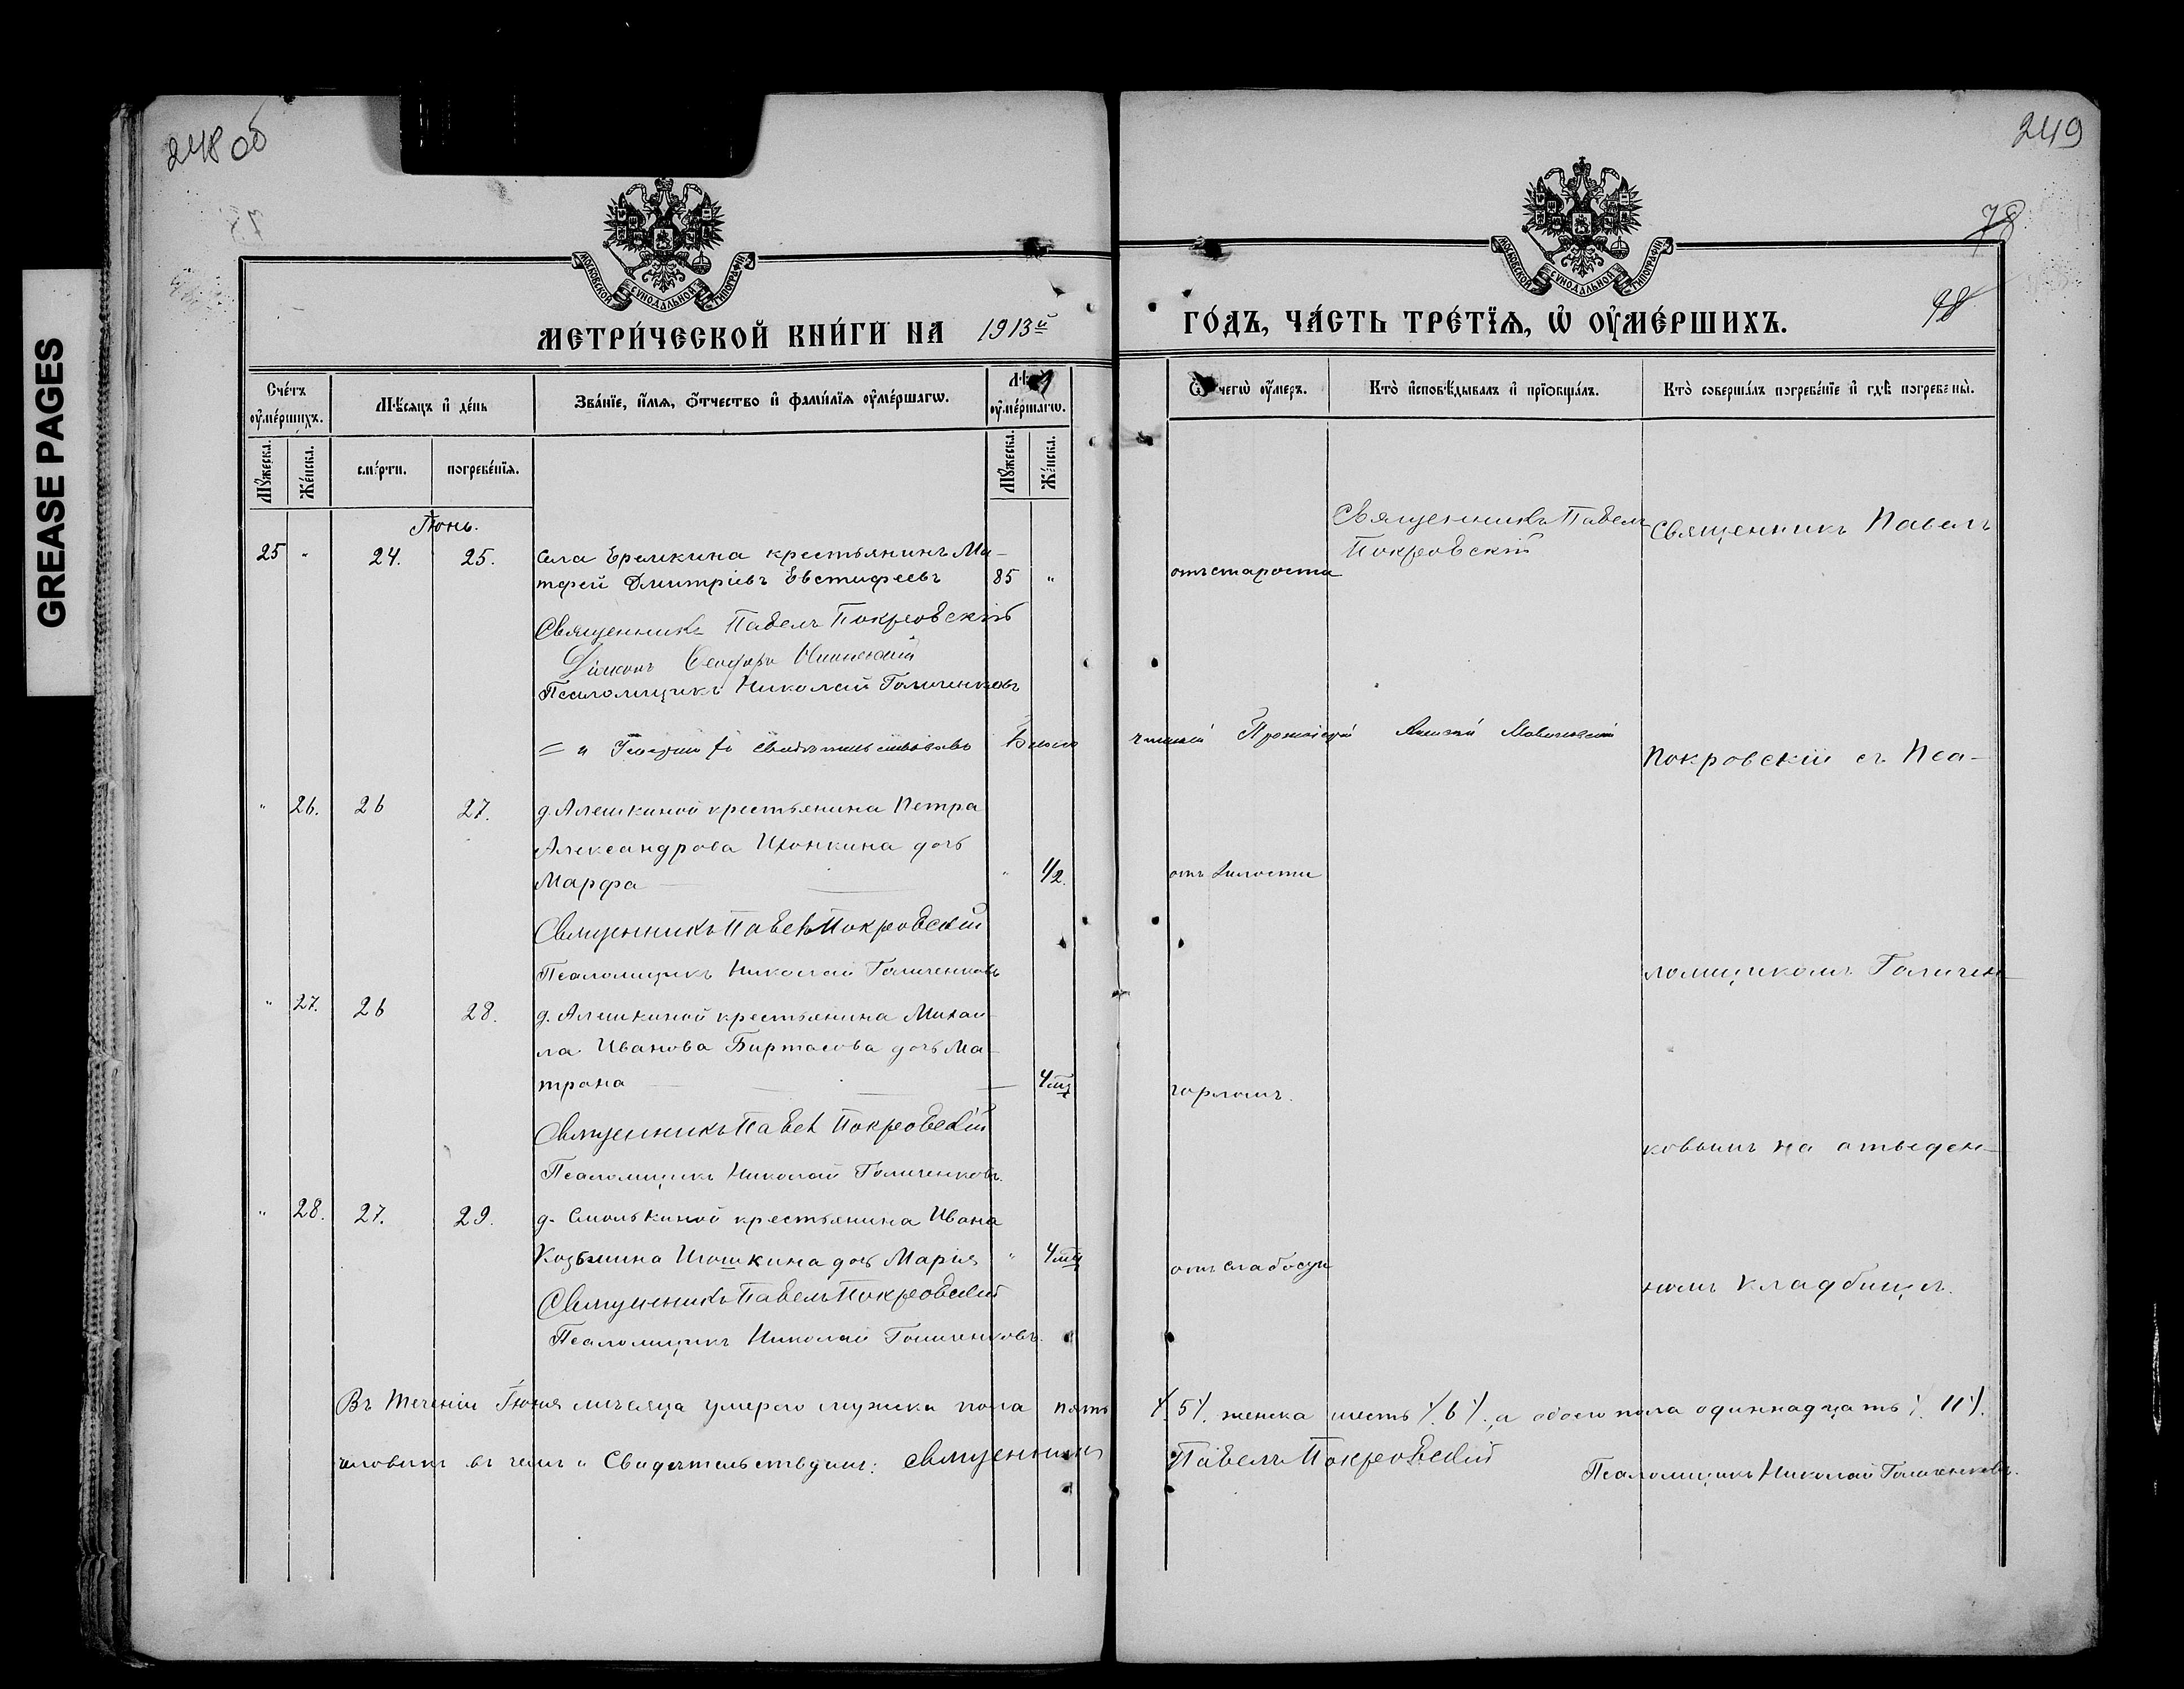 GREASE PAGES
248 об
249
78
98
МОСКОВСКОЙ СѴНОДАЛЬНОЙ ТИПОГРАФІИ
МОСКОВСКОЙ СѴНОДАЛЬНОЙ ТИПОГРАФІИ
МЕТРИ́ЧЕСКОЙ КНИ́ГИ НА 1913й
ГО́ДЪ, ЧА́СТЬ ТРЕ́ТЇѦ, Ѡ҆ ОУ҆МЕ́РШИХЪ.
Сче́тъ оу҆ме́ршихъ.
Мѣ́сяцъ и҆ де́нь
Зва́нїе, и҆́мѧ, ѻ҆́тчество и҆ фами́лїѧ оу҆ме́ршагѡ.
оу҆ме́ршагѡ.
чегѡ̀ оу҆́меръ.
Кто̀ и҆сповѣ́дывалъ и҆ прїѡбща́лъ.
Кто̀ соверша́лъ погребе́нїе и҆ гдѣ̀ погребены̀.
Мꙋ́жеска. Же́нска.
сме́рти. погребе́нїѧ.
Мꙋ́жеска. Же́нска.
Іюнь.
25 " 24. 25. села Еремкина крестьянинъ Ма-
тфей Дмитріевъ Евстифеевъ 85 " отъ старости
Священникъ Павелъ
Покровскій
Священникъ Павелъ
Священникъ Павелъ Покровскій
Діаконъ
Псаломщикъ Николай Голиченковъ
Покровскій съ Пса-
" 26. 26 27. д. Алешкиной крестьянина Петра
Александрова Ихонкина дочь
Марфа " 1/2. отъ
Священникъ Павелъ Покровскій
Псаломщикъ Николай Голиченковъ
ломщикомъ Голичен-
" 27. 26 28. д. Алешкиной крестьянина Михаи-
ла Иванова Биртасова дочь Ма-
трона 4 мц горломъ.
Священникъ Павелъ Покровскій
Псаломщикъ Николай Голиченковъ.
ковымъ на отведен-
" 28. 27. 29. д. Смолькиной крестьянина Ивана
Козьмина Игошкина дочь Марія " 4 мц отъ слабости
Священникъ Павелъ Покровскій
Псаломщикъ Николай Голиченковъ.
номъ кладбищѣ.
Въ теченіи Іюня мѣсяца умерло мужска пола пять /.5./. женска шесть /.6./., а обоего пола одиннадцать /.11./.
человѣкъ въ чемъ и Свидѣтельствуемъ: Священникъ Павелъ Покровскій
Псаломщикъ Николай Голиченковъ.